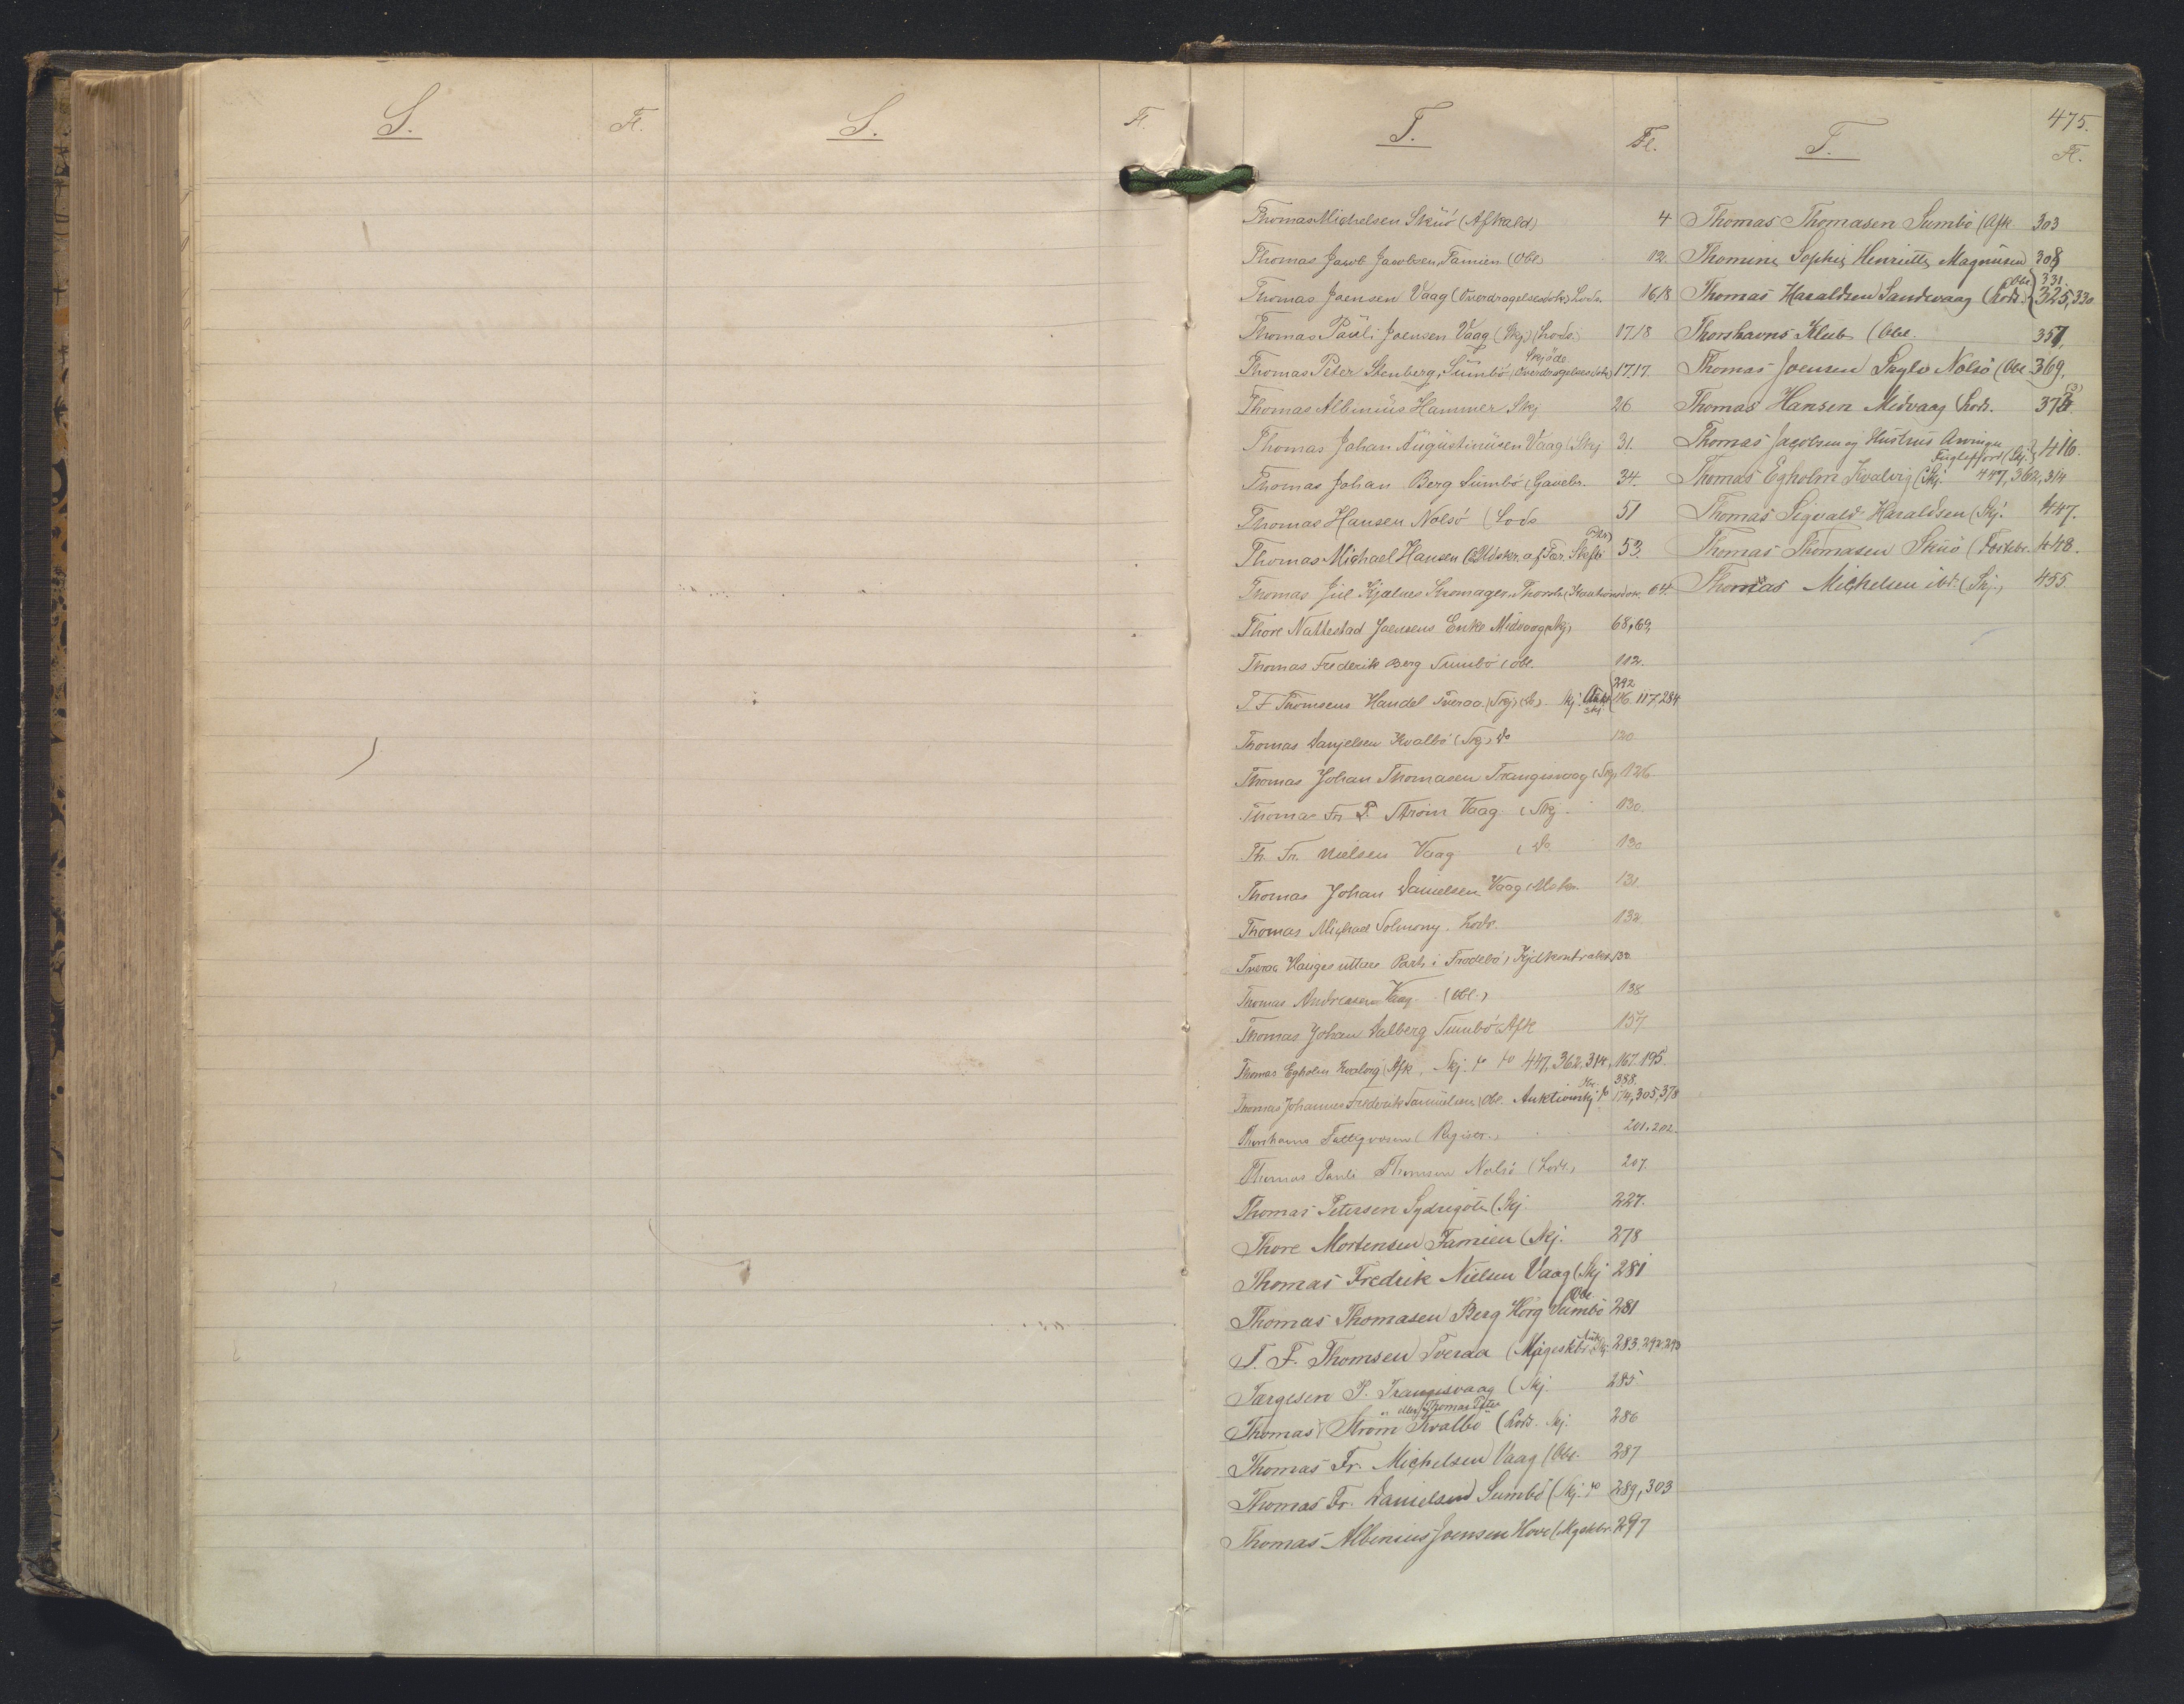 S.
Fl.
S.
Fl.
T.
Fl.
T.
475.
Fl.
Thomas Michelsen Skuö (Afkald) 4
Thomas Jacob Jacobsen, Famien (Obl) 12.
Thomas Joensen Vaag (Overdragelsesdok) Lods. 16,18
Thomas Pauli Joensen Vaag (Skj) (Lods.) 17.18
Skjöde.
Thomas Peter Stenberg, Sumbö, (Overdragelsesdok) 17.17.
Thomas Albinius Hammer Skj 26
Thomas Johan Augustinusen Vaag (Skj 31.
Thomas Johan Berg Sumbö (Gavebr. 34.
Thomas Hansen Nolsö (Lods 51
Thomas Michael Hansen 53
Thomas Jul Kjølnes Skomager, Thorsh. (Kautionsdok. 64.
Thore Nattestad Joensens Enke Midvaag (Skj) 68,69,
Thomas Frederik Berg Sumbö (Obl. 112.
292
T. F. Thomsens Handel Tveraa. (Skj) Skj. 116. 117, 284
Thomas Danjelsen Kvalbö (Skj) do 120
Thomas Johan Thomasen Trangisvaag (Skj 126
Thomas Fr. P. Strøm Vaag (Skj 130.
Th. Fr. Nielsen Vaag (do 130
Thomas Johan Danielsen Vaag 131.
Thomas Michael Solmony. Lods. 132
Tveraa Hauges uttare Part i Frodebö, 132
Thomas Andreasen Vaag (Obl.) 138
Thomas Johan Dalberg Sumbö Afk 157
Thomas Egholm Kvalvig (Afk, Skj. do do 447, 362, 314, 167. 195.
388.
Thomas Johannes Frederik Samuelsen (Obl. Auktionskj. do 174, 305, 378
Thorshavns Fattigvæsen (Registr.) 201. 202.
Thomas Pauli Thomsen Nolsö (Lods.) 207.
Thomas Petersen Sydregöte (Skj. 227.
Thore Mortensen Famien (Skj. 278
Thomas Fredrik Nielsen Vaag (Skj 281
Obl.
Thomas Thomasen Berg Hørg Sumbö 281
T. F. Thomsen Tveraa (Mageskbr. 283. 292 293
Targesen P. Trangisvaag (Skj. 285.
eller Thomas Peter
Thomas Strøm Kvalbö (Lods. Skj. 286
Thomas Fr. Michelsen Vaag (Obl. 287
Thomas Fr. Danielsen Sumbö (Skj. do 289, 303
Thomas Albinius Joensen Hove (Mgskbr. 297
Thomas Thomasen Sumbö (Afk 303
Thomine Sophie Henriette Magnusen 308
Obl. 331.
Thomas Haraldsen Sandevaag (Lods. 325, 330
Thorshavns Klub (Obl. 351,
Thomas Joensen Skylö Nolsö (Obl. 369,
Thomas Hansen Midvaag (Lods.
Thomas Jacobsen og Hustrus Arvinger
Fuglefjord (Skj. 416.
Thomas Egholm Kvalvig (Skj. 447, 362, 314
Thomas Sigvald Haraldsen (Skj. 447.
Thomas Thomasen Skuö (Fæstebr. 448.
Thomas Michelsen ibd. (Skj.) 455.